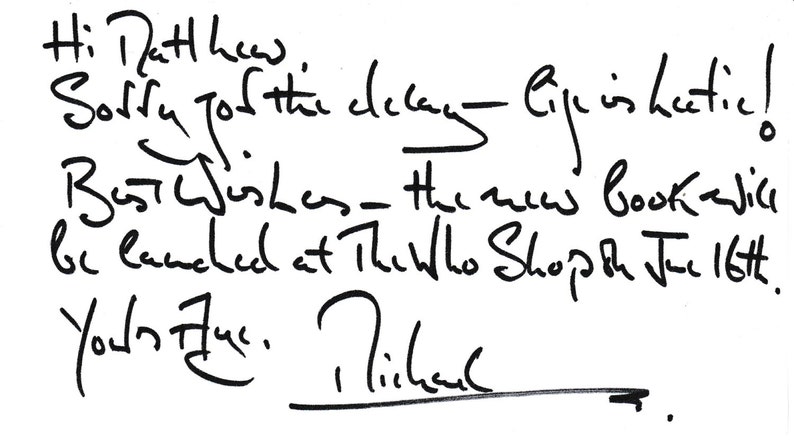 Hi Matthew,
Sorry for the delay – life is hectic!
Best Wishes – the new book will
be launched at The Who Shop on June 16th.
Yours Aye.
Michael